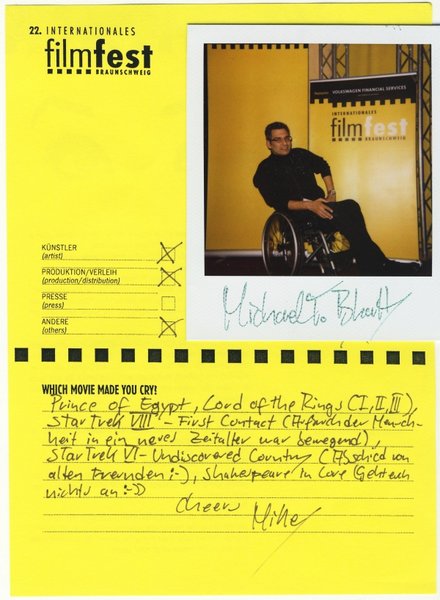 22. INTERNATIONALES
filmfest
BRAUNSCHWEIG
VOLKSWAGEN FINANCIAL SERVICES
INTERNATIONALES
filmfest
BRAUNSCHWEIG
Michael T. Bhatty
KÜNSTLER
(artist)
PRODUKTION/VERLEIH
(production/distribution)
PRESSE
(press)
ANDERE
(others)
WHICH MOVIE MADE YOU CRY?
Prince of Egypt, Lord of the Rings (I, II, III),
Star Trek VIII - First Contact (Aufbruch der Mensch-
heit in ein neues Zeitalter war bewegend),
Star Trek VI - Undiscovered Country (Abschied von
alten Freunden :-), Shakespeare in Love (Geht euch
nichts an :-))
Cheers
Mike